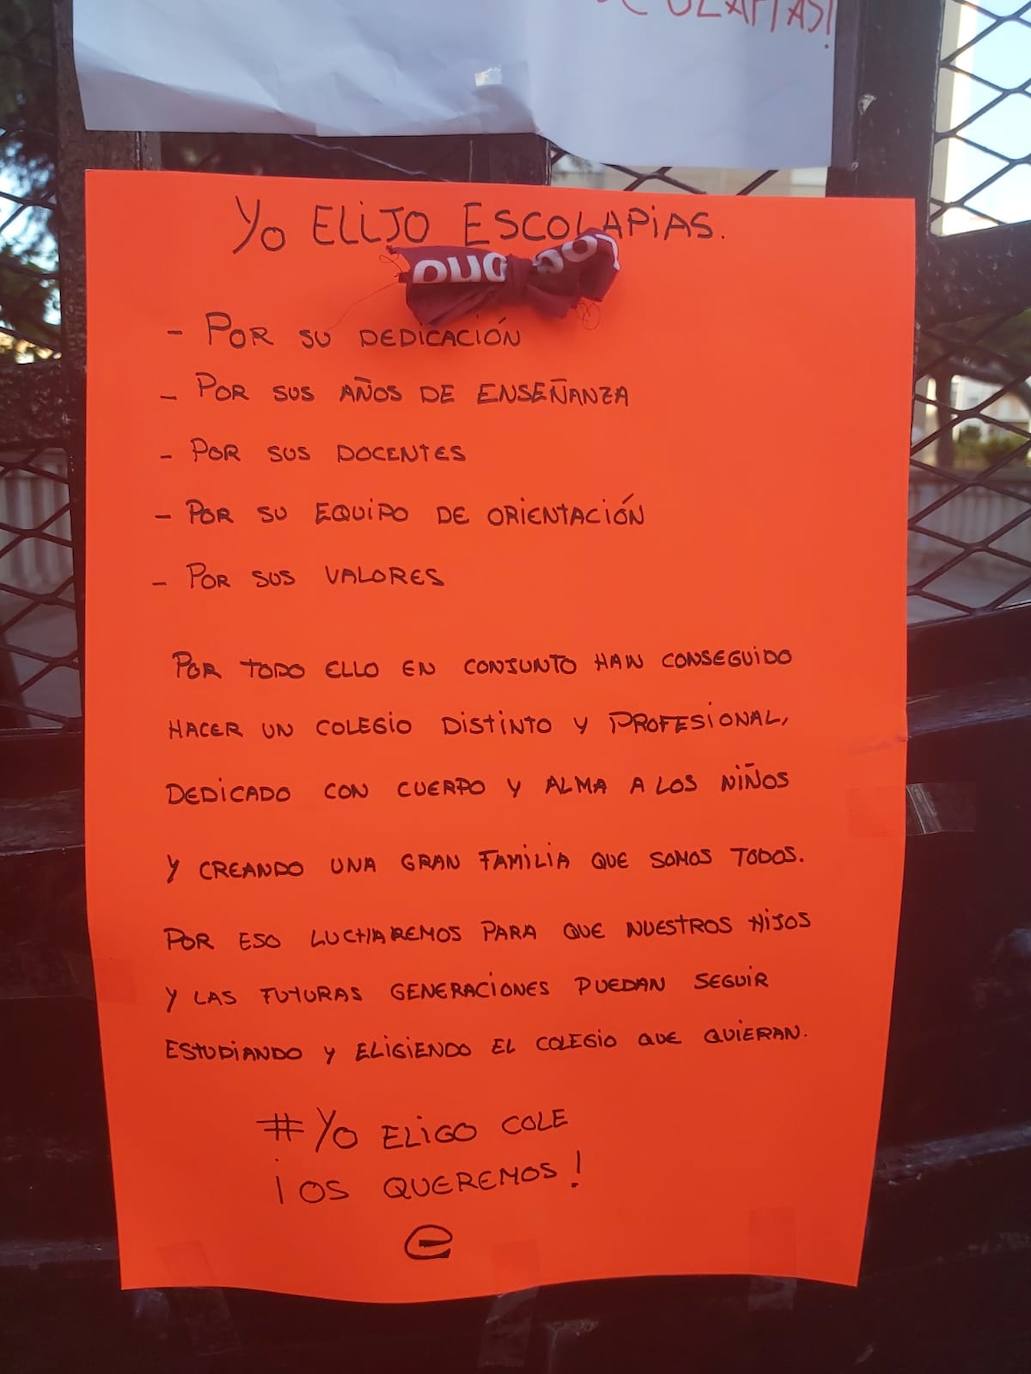 ESCOLAPIAS!
Yo ELIJO ESCOLAPIAS.
- POR SU DEDICACIÓN
- POR SUS AÑOS DE ENSEÑANZA
- POR SUS DOCENTES
- POR SU EQUIPO DE ORIENTACIÓN
- POR SUS VALORES
POR TODO ELLO EN CONJUNTO HAN CONSEGUIDO
HACER UN COLEGIO DISTINTO Y PROFESIONAL,
DEDICADO CON CUERPO Y ALMA A LOS NIÑOS
Y CREANDO UNA GRAN FAMILIA QUE SOMOS TODOS.
POR ESO LUCHAREMOS PARA QUE NUESTROS HIJOS
Y LAS FUTURAS GENERACIONES PUEDAN SEGUIR
ESTUDIANDO Y ELIGIENDO EL COLEGIO QUE QUIERAN.
#YO ELIGO COLE
¡OS QUEREMOS!
e